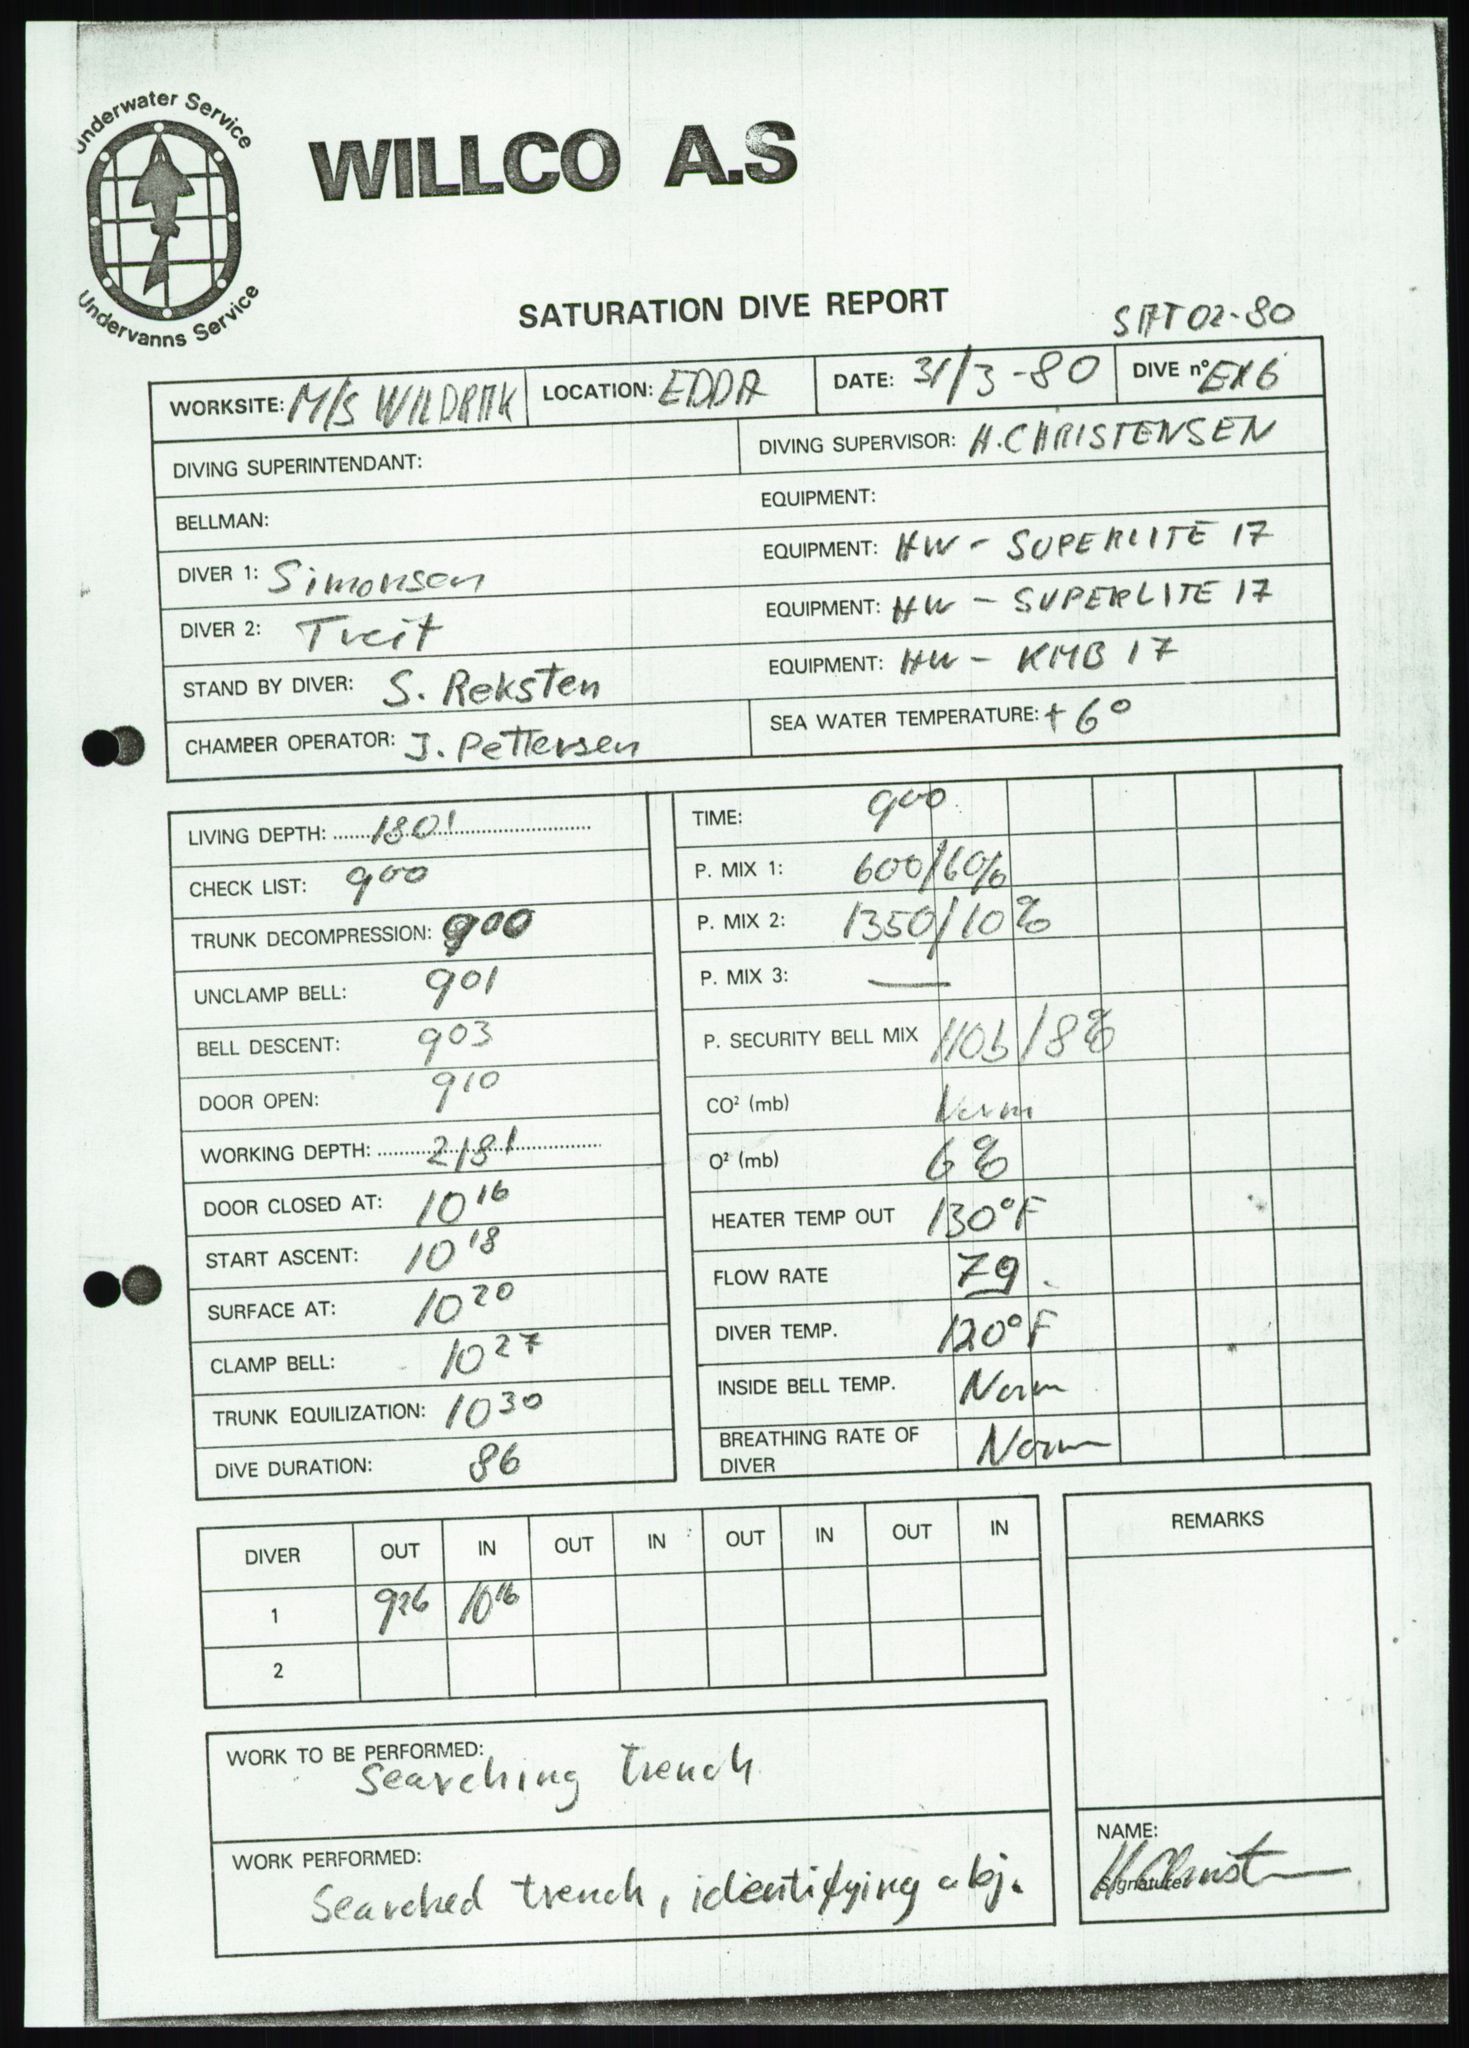 Underwater Service
Undervanns Service
WILLCO A.S
SATURATION DIVE REPORT
SAT 02-80
WORKSITE: M/S WILDRAK LOCATION: EDDA DATE: 31/3-80 DIVE nº EX6
DIVING SUPERINTENDANT: DIVING SUPERVISOR: H. CHRISTENSEN
BELLMAN: EQUIPMENT:
DIVER 1: Simonsen EQUIPMENT: HW - SUPERLITE 17
DIVER 2: Treit EQUIPMENT: HW - SUPERLITE 17
STAND BY DIVER: S. Reksten EQUIPMENT: HW - KMB 17
CHAMBER OPERATOR: J. Pettersen SEA WATER TEMPERATURE: +6°
LIVING DEPTH: 180'
CHECK LIST: 900
TRUNK DECOMPRESSION: 900
UNCLAMP BELL: 901
BELL DESCENT: 903
DOOR OPEN: 910
WORKING DEPTH: 218'
DOOR CLOSED AT: 10 16
START ASCENT: 10 18
SURFACE AT: 10 20
CLAMP BELL: 10 27
TRUNK EQUILIZATION: 10 30
DIVE DURATION: 86
TIME: 900
P. MIX 1: 600/60%
P. MIX 2: 1350/10%
P. MIX 3: —
P. SECURITY BELL MIX 110b/8%
CO² (mb) Norm
O² (mb) 6%
HEATER TEMP OUT 130°F
FLOW RATE 7g
DIVER TEMP. 120°F
INSIDE BELL TEMP. Norm
BREATHING RATE OF
DIVER Norm
DIVER OUT IN OUT IN OUT IN OUT IN
1 926 10 16
2
REMARKS
WORK TO BE PERFORMED:
Searching trench
WORK PERFORMED:
Searched trench, identifying obj.
NAME:
H Christ
Signature